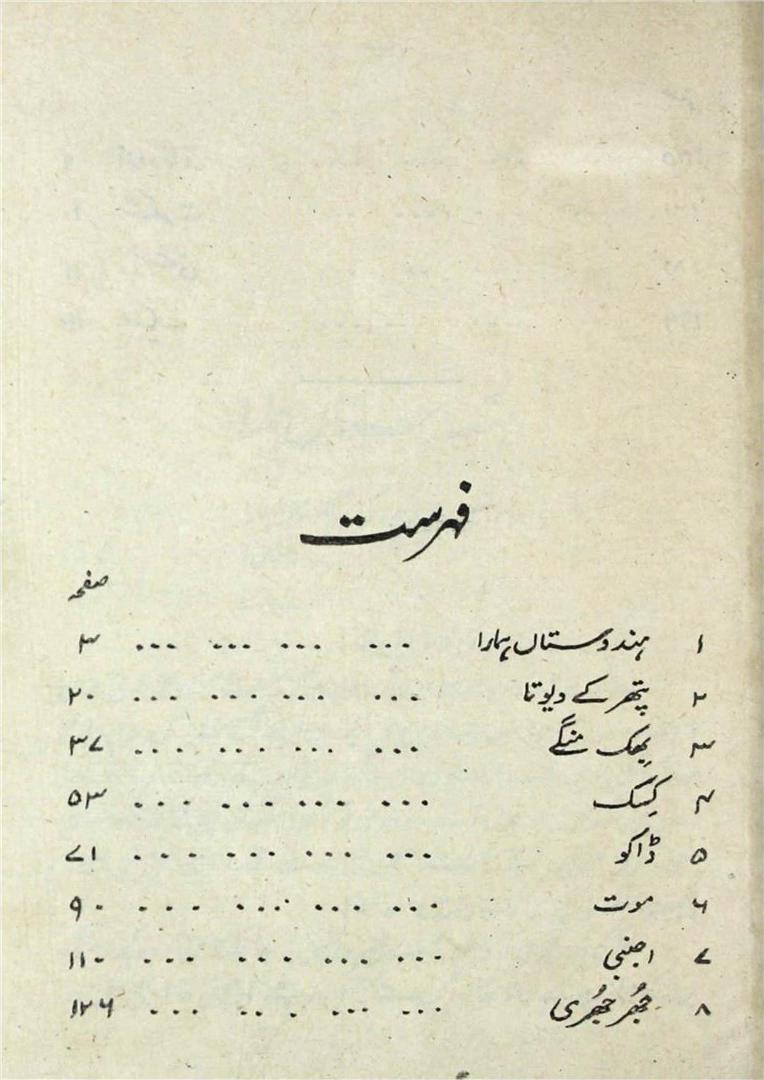 فہرست
صفحہ
۱ ہندوستاں ہمارا ... ... ... ... ۳
۲ پتھر کے دیوتا ... ... ... ... ۲۰
۳ بھک منگے ... ... ... ... ۳۷
۴ کسک ... ... ... ... ۵۳
۵ ڈاکو ... ... ... ... ۷۱
۶ موت ... ... ... ... ۹۰
۷ اجنبی ... ... ... ... ۱۱۰
۸ جُھرجُھری ... ... ... ... ۱۲۶